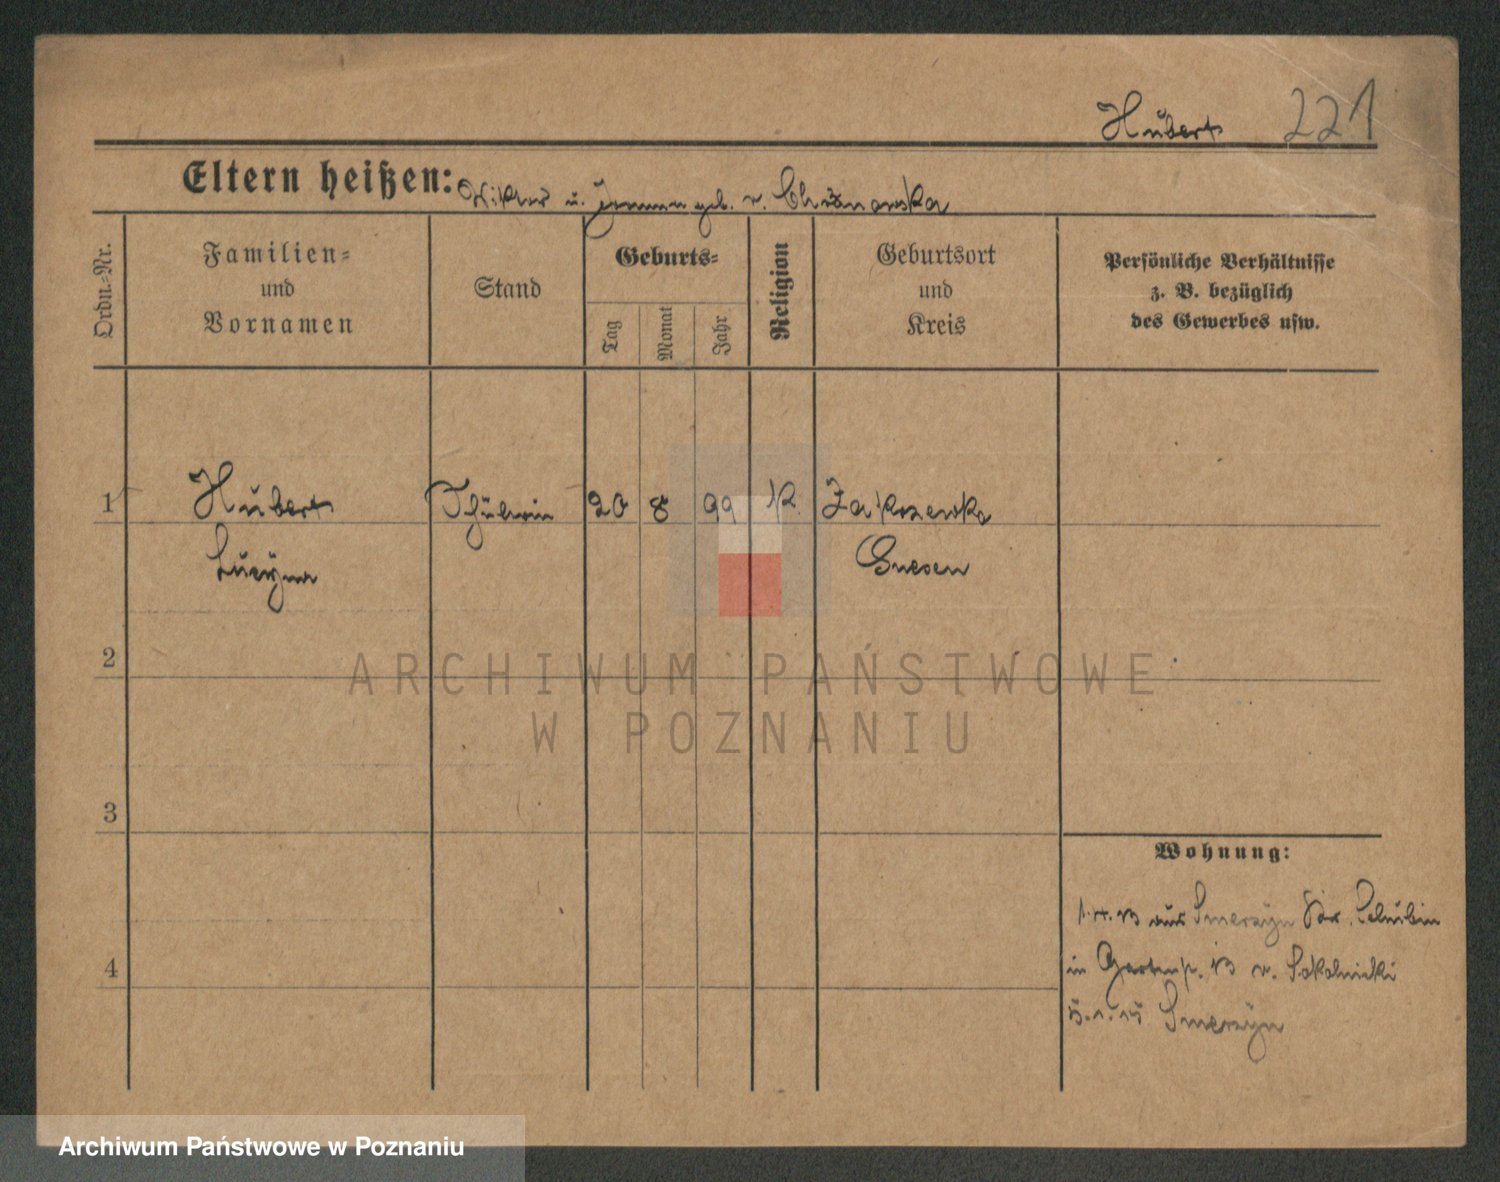 Hubert 221
Eltern heißen: Wiktor u. geb. v. Chrzanowska
Ordn.-Nr.
Familien-
und
Vornamen
Stand
Geburts-
Tag
Monat
Jahr
Religion
Geburtsort
und
Kreis
Persönliche Verhältnisse
z. B. bezüglich
des Gewerbes usw.
1 Hubert Schülerin 20 8 99 K. Zakrzewko
Lucyna Gnesen
2
ARCHIWUM PAŃSTWOWE
W POZNANIU
3
Wohnung:
aus Smerzyn Kr. Schubin
4
in Gartenstr. 13 v. Sokolnicki
Smerzyn
Archiwum Państwowe w Poznaniu